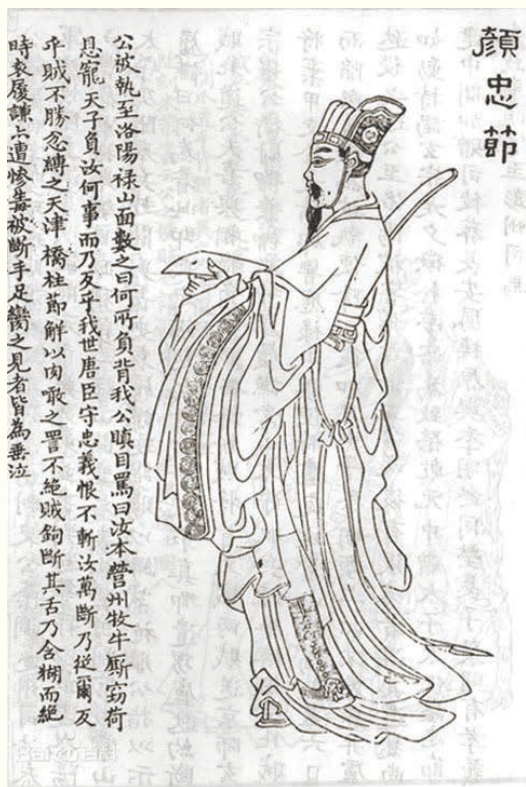 顏忠節
公被執至洛陽祿山面數之曰何所負背我公瞋目罵曰汝本營州牧牛廝竊荷
恩寵天子負汝何事而乃反乎我世唐臣守忠義恨不斬汝萬斷乃從爾反
乎賊不勝忿縛之天津橋柱節解以肉噉之詈不絕賊鉤斷其舌乃含糊而絕
時袁履謙亦遭慘毒被斷手足臠之見者皆為垂泣
Baidu百科